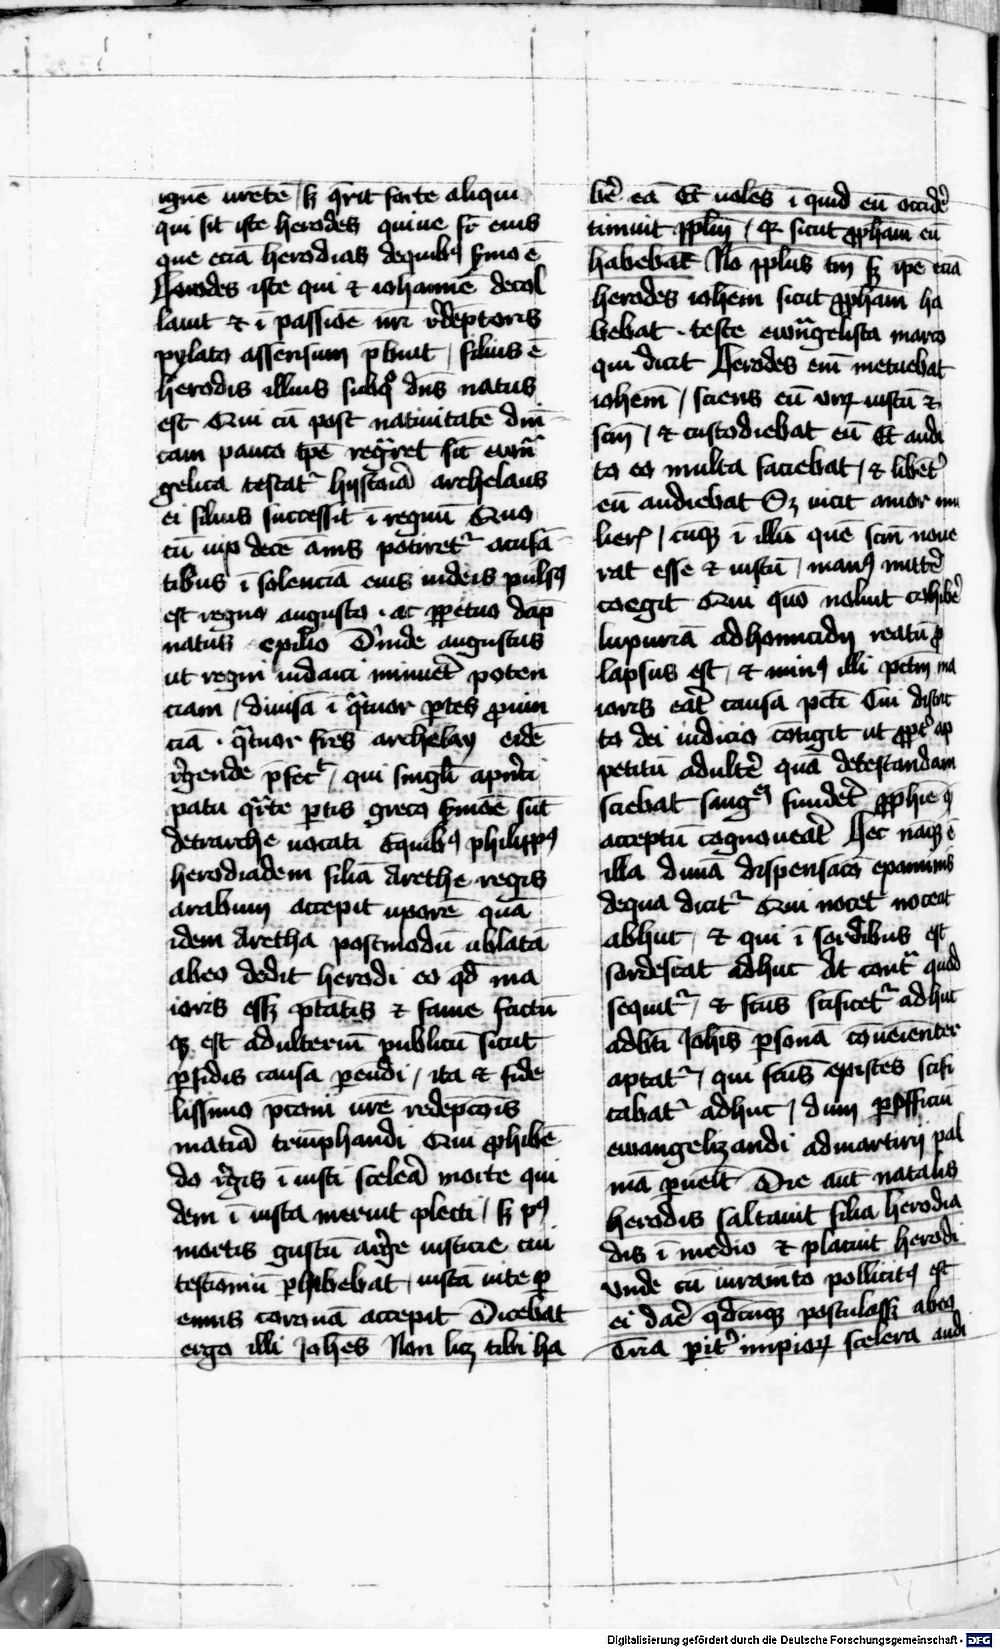 ignē urētē / sꝫ q̄rit forte aliquis
qui sit iste herodes quiue fr̄ eius
que eciā herodias de quibꝰ sermo ē
Herodes iste qui ⁊ iohannē decol
lauit ⁊ ī passiōe nr̄i rēdēptoris
pylato assensum p̄buit / filius ē
herodis illius sub quo dn̄s natus
est Qui cū post natiuitatē dn̄i
cam pauco tp̄e regnaret sic̄ euā
gelica testatr̄ hystoria archelaus
ei filius successit ī regnū Quo
cū uix decē annis potiretr̄ acusā
tibus īsolenciā eius iudeis pulsꝰ
est regno augusto · ac ꝑpetuo dāp
natus exilio Dīnde augustus
ut regni iudaici minueret poten
ciam / diuisā ī q̄tuor ꝑtes ꝓuin
ciā · q̄tuor fr̄es archelay eidē
regende p̄fecit / qui singuli a prīci
patu q̄rte ꝑtis greco sermōe sūt
detrarche uocati E quibꝰ philippꝰ
herodiadem filiā Arethe regis
arabum accepit uxorē quā
idem Aretha postmodū ablatā
ab eo dedit herodi eo qd̄ ma
ioris essꝫ p̄tatis ⁊ fame factū
qꝫ est adulteriū publicū sicut
ꝑfidis causa ꝑeundi / ita ⁊ fide
lissimo p̄coni ure redēpcōis
materiā triūphandi Qui ꝓhibē
do regis īiusti scelera morte qui
dem īiusta meruit plecti / sꝫ pꝰ
mortis gustū arge iusticie cui
testimoniū ꝑhibebat / iusta uite ꝑ
ennis coronā accepit Dicebat
ergo illi Johēs Non licꝫ tibi ha
bere eā Et uolēs ī quid eū occidere
timuit pplm̄ / qr sicut ꝓphām eū
habebat No pplus tm̄ sꝫ ipe eciā
herodes iohēm sicut ꝓphām ha
bebat · teste ewāgelista marco
qui dicit Herodes em̄ metuebat
iohēm / sciens eū virū iustū ⁊
scm̄ / ⁊ custodiebat eū Et audi
to eo multa faciebat / ⁊ libentr̄
eū audiebat Sꝫ uicit amor mu
lieris / cūqꝫ ī illū quē scm̄ noue
rat esse ⁊ iustū / manꝰ mittere
coegit Qui quō noluit cohibere
luxuriā ad homicidij reatū ꝓ
lapsus est / ⁊ minꝰ illi pctm̄ ma
ioris erat causa pcti Cui district
to dei iudicio cōtigit ut ꝓpter ap
petitū adultere quā detestandam
sciebat sanguinē funderet ꝓphe q̄
acceptū cognouerat Hec naqꝫ ē
illa diuina dispensacio examinis
de qua dicitr̄ Qui nocet noceat
adhuc / ⁊ qui ī sordibus est
sordescat adhuc At contra quod
sequitr̄ / ⁊ scūs scificetr̄ adhuc
ad bt̄i Johīs ꝑsonā cōueienter
aptatr̄ / qui scūs exn̄stēs scifi
cabatr̄ adhuc / dum ꝑ officiū
ewangelizandi ad martirij pal
mā ꝑuenit Die aut̄ natalis
herodis saltauit filia herodia
dis ī medio ⁊ placuit herodi
Unde cū iuramēto pollicitꝰ est
ei dare qd̄cūqꝫ postulassꝫ ab eo
Tria ꝑitr̄ impioꝝ scelera audi